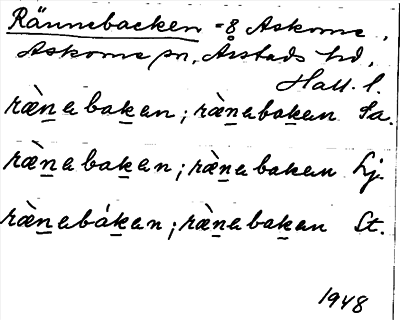 Rännebacken =8 Askome,
Askome sn, Årstads hd,
Hall. l.
ræ̀n̲abak̲an; ræ̀n̲abak̲an Sa.
ræ̀n̲abak̲an; ræ̀n̲abak̲an Lj.
ræ̀n̲abák̲an; ræ̀n̲abak̲an St.
1948